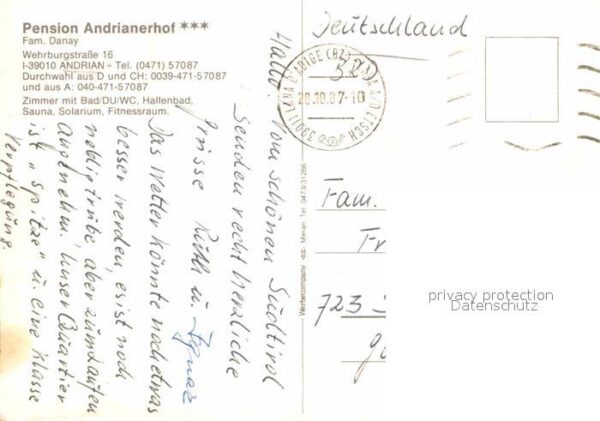 Pension Andrianerhof ***
Fam. Danay
Wehrburgstraße 16
I-39010 ANDRIAN - Tel. (0471) 57087
Durchwahl aus D und CH: 0039-471-57087
und aus A: 040-471-57087
Zimmer mit Bad/DU/WC, Hallenbad,
Sauna, Solarium, Fitnessraum.
Hallo
Vom schönen Südtirol
senden recht herzliche
Grüsse Ruth u. Ignaz
Das Wetter könnte noch etwas
besser werden, es ist noch
neblig trübe aber zum Laufen
angenehm. Unser Quartier
ist "spitze" u. eine Klasse
Verpflegung.
Deutschland
39011 LANA D'ADIGE (BZ)
28.10.87-10
Werbecompany Meran Tel. 0473/31266
Fam.
Fr
723
privacy protection
Datenschutz